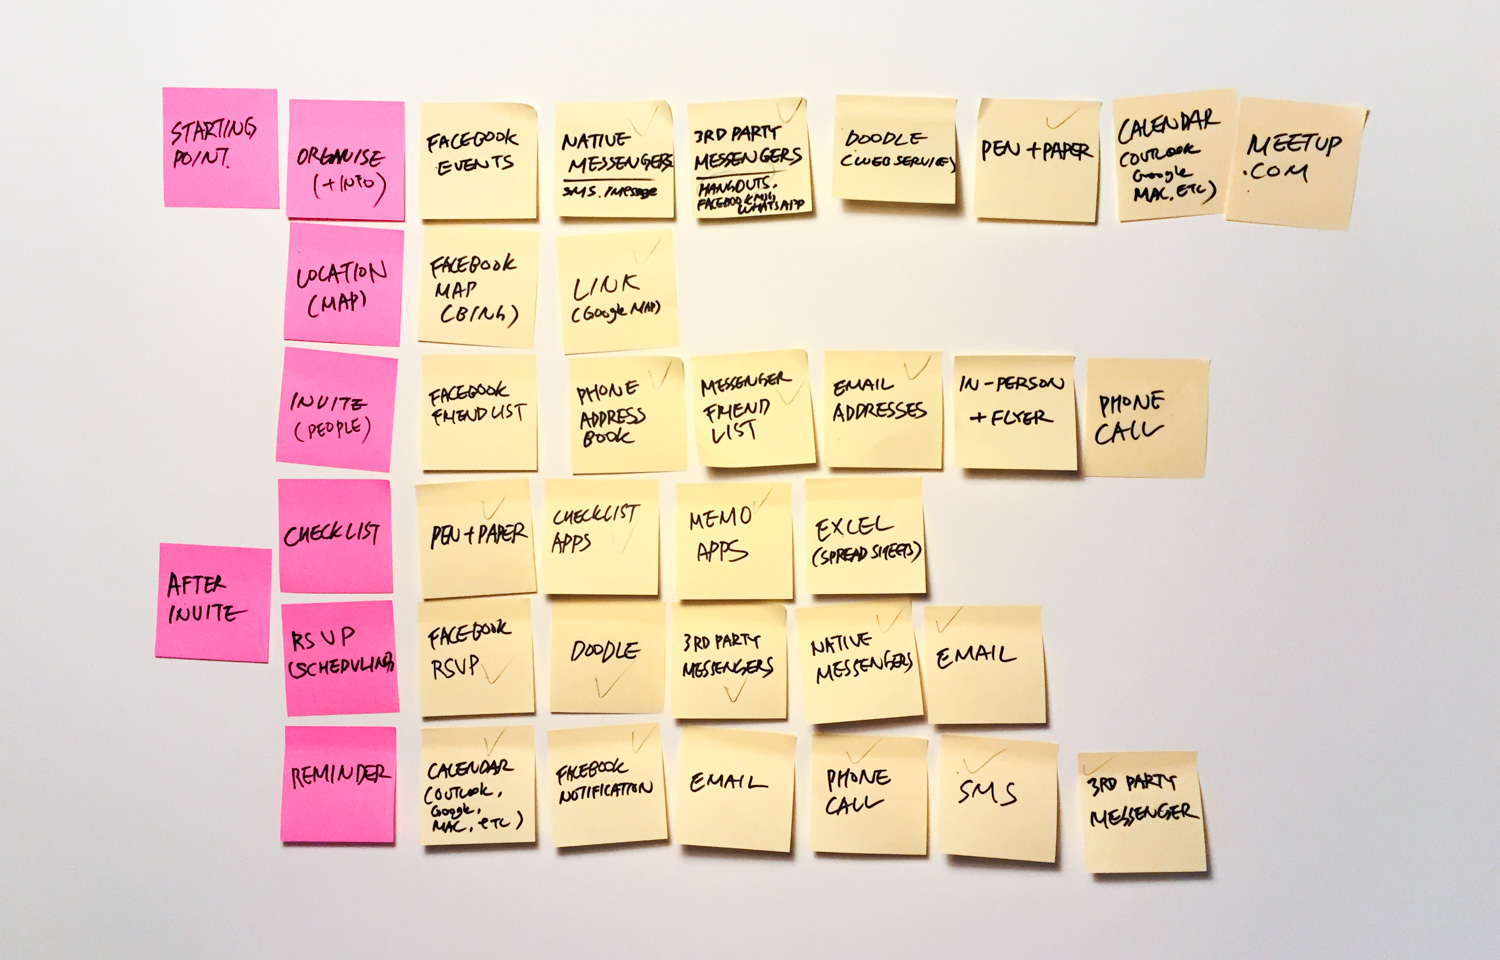 STARTING
POINT.
ORGANISE
(+INFO)
FACEBOOK
EVENTS
NATIVE
MESSENGERS
SMS, iMessage
3RD PARTY
MESSENGERS
HANGOUTS,
FACEBOOK MSG,
WHATSAPP
DOODLE
(WEB SERVICE)
PEN + PAPER
CALENDAR
(OUTLOOK
Google
MAC, ETC)
MEETUP
.COM
LOCATION
(MAP)
FACEBOOK
MAP
(BING)
LINK
(Google MAP)
INVITE
(PEOPLE)
FACEBOOK
FRIEND LIST
PHONE
ADDRESS
BOOK
MESSENGER
FRIEND
LIST
EMAIL
ADDRESSES
IN-PERSON
+ FLYER
PHONE
CALL
CHECKLIST
PEN + PAPER
CHECKLIST
APPS
MEMO
APPS
EXCEL
(SPREAD SHEETS)
AFTER
INVITE
RSVP
(SCHEDULING)
FACEBOOK
RSVP
DOODLE
3RD PARTY
MESSENGERS
NATIVE
MESSENGERS
EMAIL
REMINDER
CALENDAR
(OUTLOOK,
Google,
MAC, ETC)
FACEBOOK
NOTIFICATION
EMAIL
PHONE
CALL
SMS
3RD PARTY
MESSENGER